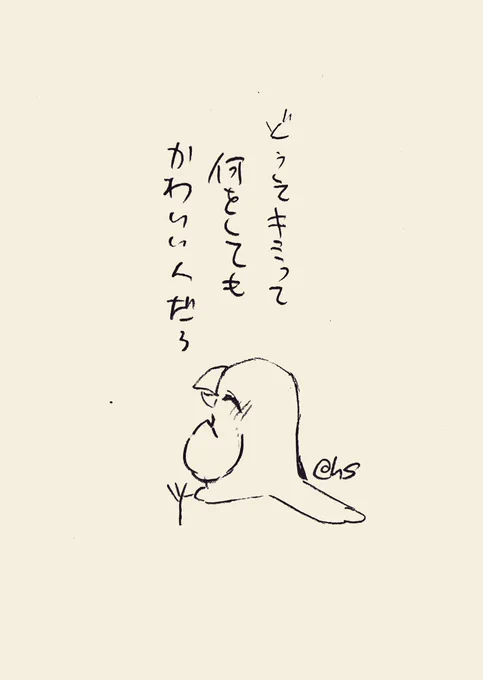 どうせキミって
何をしても
かわいい人だろ
@hs